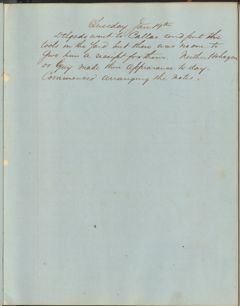 Thursday Jan 19th
went to Callao and put the
tools in the Yard but there was no one to
give him a receipt for them. Neither
or Guy made their appearance to day
Commenced arranging the notes.